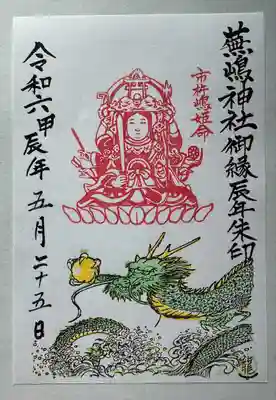 蕪嶋神社御縁辰年朱印
市杵嶋姫命
令和六甲辰年 五月二十五日